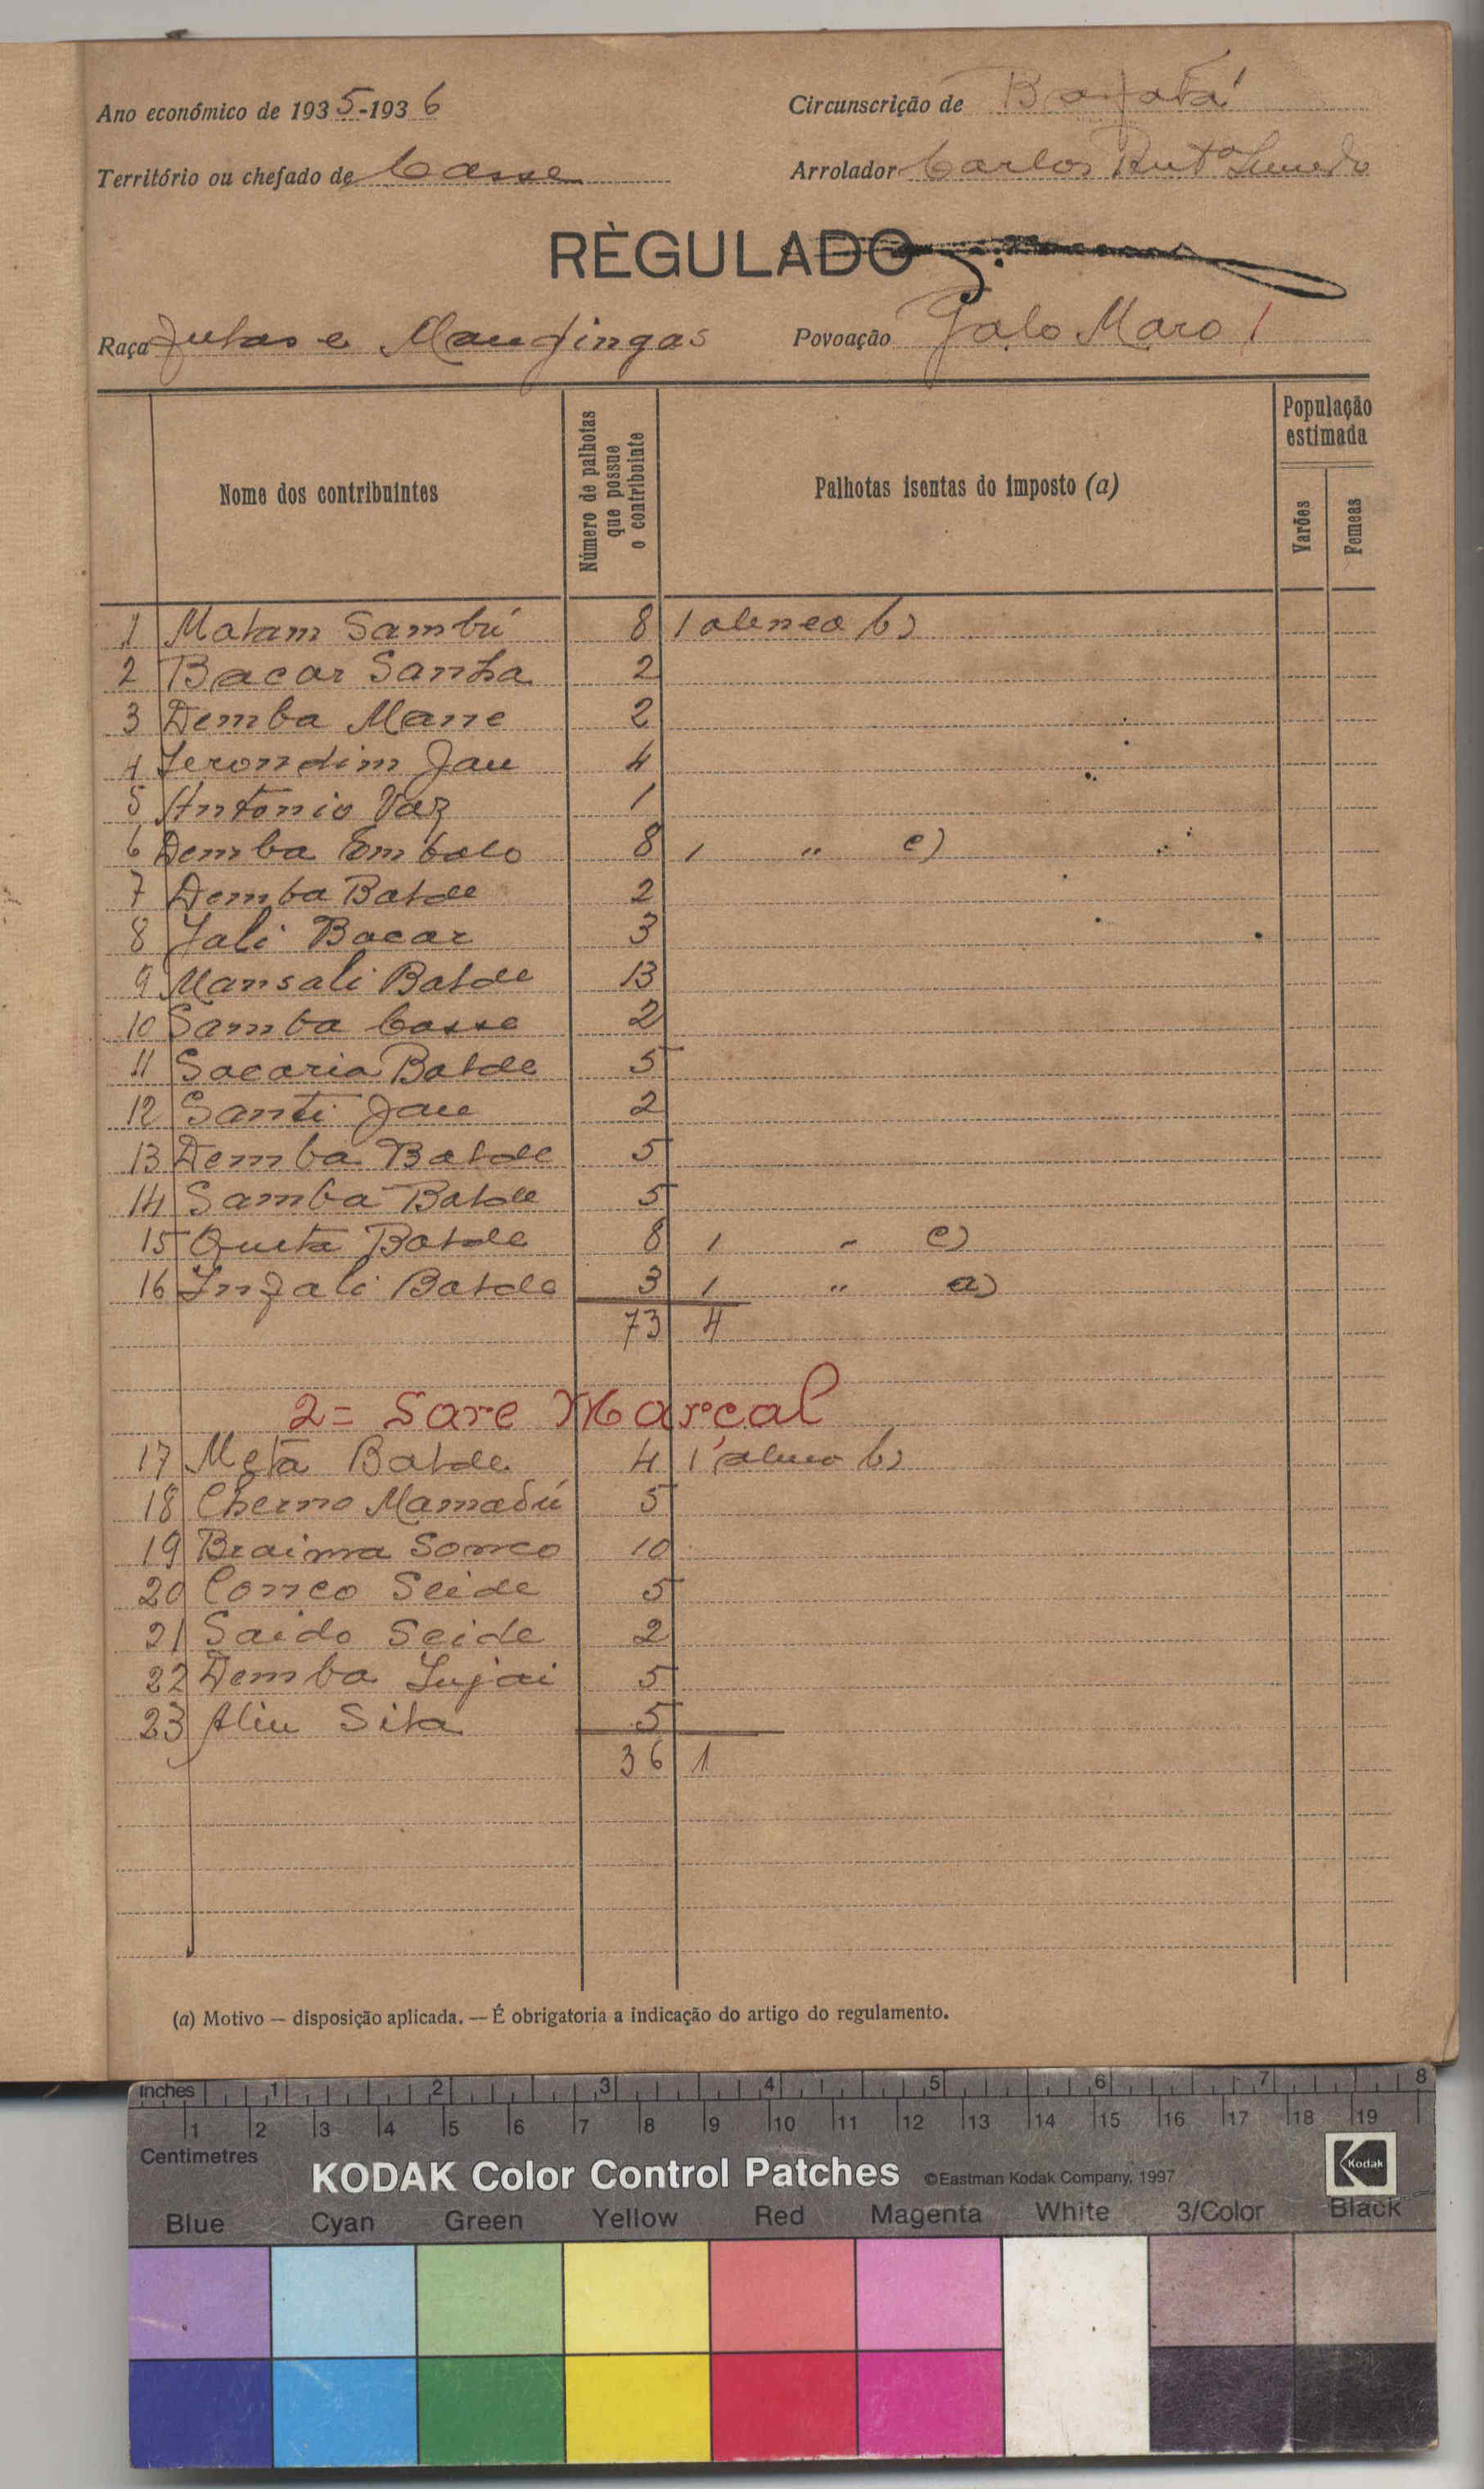 Ano económico de 1935-1936
Circunscrição de Bafatá
Território ou chefado de Casse
Arrolador Carlos
RÈGULADO
Raça Fulas e Mandingas
Povoação Galo Maro 1
Nome dos contribuintes
Número de palhotas que possue o contribuinte
Palhotas isentas do imposto (a)
População estimada
Varões
Femeas
1 Malam Sambú 8 1 alenea b)
2 Bacar Sanha 2
3 Demba Mane 2
4 Serondim Jau 4
5 Antonio Vaz 1
6 Demba Embalo 8 1 " c)
7 Demba Balde 2
8 Jali Bacar 3
9 Mansali Balde 13
10 Samba Casse 2
11 Sacaria Balde 5
12 Santi Jau 2
13 Demba Balde 5
14 Samba Balde 5
15 Queta Balde 8 1 " c)
16 Injali Balde 3 1 " a)
73 4
2= Sare Marçal
17 Meta Balde 4 1 alinea b)
18 Cherno Mamadú 5
19 Braima Sonco 10
20 Conco Seide 5
21 Saido Seide 2
22 Demba Sujai 5
23 Aliu Sila 5
36 1
(a) Motivo — disposição aplicada. — É obrigatoria a indicação do artigo do regulamento.
Inches 1 2 3 4 5 6 7 8
1 2 3 4 5 6 7 8 9 10 11 12 13 14 15 16 17 18 19
Centimetres
KODAK Color Control Patches ©Eastman Kodak Company, 1997 Kodak
Blue Cyan Green Yellow Red Magenta White 3/Color Black